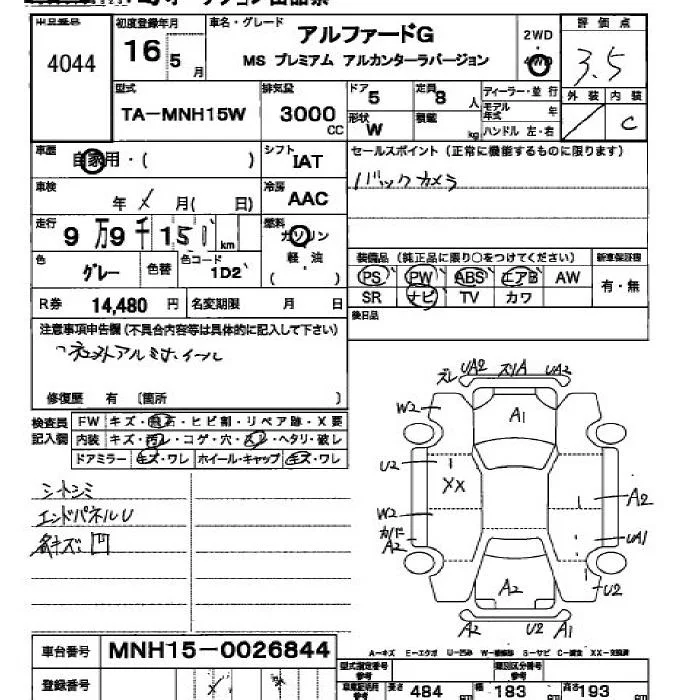 4044
初度登録年月
16 5 月
車名・グレード
アルファードG
MS プレミアム アルカンターラバージョン
2WD
4WD
評 価 点
3.5
型式
TA-MNH15W
排気量
3000 CC
ドア 5
定員 8 人
形状 W
積載 kg
ディーラー・並 行
モデル年式 年
ハンドル 左・右
外 装 内 装
C
車歴
自家用・( )
シフト
IAT
セールスポイント(正常に機能するものに限ります)
バックカメラ
車検
年 月( 日)
冷房
AAC
走行
9 万 9 千 151 km
燃料
ガソリン
軽 油
( )
色
グレー
色替
色コード
1D2
装備品 (純正品に限り○をつけてください)
新車保証書
PS PW ABS エアB AW
有・無
SR ナビ TV カワ
R券 14,480 円
名変期限 月 日
後日品
注意事項申告欄(不具合内容等は具体的に記入して下さい)
社外アルミホイール
修復歴 有 〔箇所 〕
検査員
記入欄
FW キズ・飛石・ヒビ割・リペア跡・X要
内装 キズ・汚レ・コゲ・穴・スレ・ヘタリ・破レ
ドアミラー キズ・ワレ ホイール・キャップ キズ・ワレ
シートシミ
エンドパネルU
キズ凹
ズレ UA2 スリA UA2
W2
A1
U2
XX
W2
A2
A2
UA1
A2
U2
A2 U2 A1
A-キズ E-エクボ U-凹み W-補修跡 S-サビ C-腐食 XX-交換済
車台番号
MNH15-0026844
登録番号
型式指定番号
参考
類別区分番号
参考
長さ 484 cm
幅 183 cm
高さ 193 cm